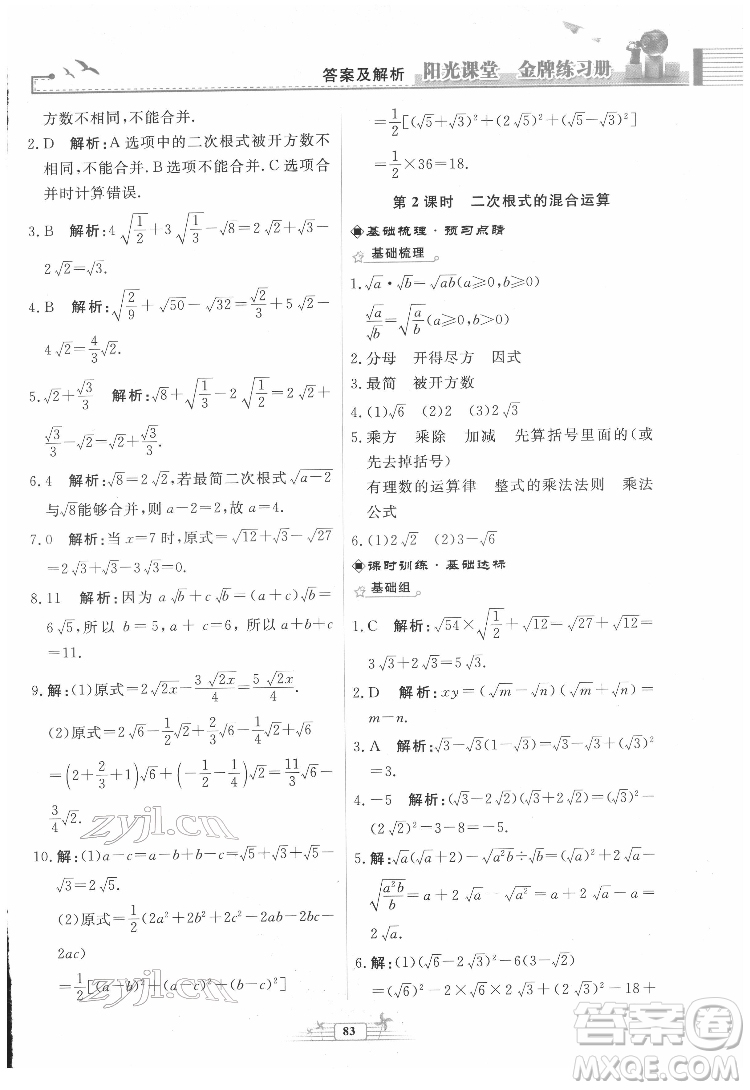 答案及解析 阳光课堂 金牌练习册
方数不相同,不能合并.
2. D 解析:A 选项中的二次根式被开方数不
相同,不能合并.B 选项不能合并.C 选项合
并时计算错误.
3. B 解析:4√(1/2)+3√(1/3)-√8=2√2+√3-
2√2=√3.
4. B 解析:√(2/9)+√50-√32=√2/3+5√2-
4√2=4/3√2.
5. √2+√3/3 解析:√8+√(1/3)-2√(1/2)=2√2+
√3/3-√2=√2+√3/3.
6. 4 解析:√8=2√2,若最简二次根式√(a-2)
与√8能够合并,故 a=4.
7. 0 解析:当 x=7 时,原式=√12+√3-√27
=2√3+√3-3√3=0.
8. 11 解析:因为 a√b+c√b=(a+c)√b=
6√5,所以 b=5,a+c=6,所以 a+b+c
=11.
9. 解:(1)原式=2√2x-3√2x/4=5√2x/4.
(2)原式=2√6-1/2√2+2/3√6-1/4√2+√6
=(2+2/3+1)√6+(-1/2-1/4)√2=11/3√6-
3/4√2.
10. 解:(1)a-c=a-b+b-c=√5+√3-√5+
√3=2√3.
(2)原式=1/2(2a²+2b²+2c²-2ab-2bc-
2ac)
=1/2[(a-b)²+(a-c)²+(b-c)²]
=1/2[(√5+√3)²+(2√3)²+(√5-√3)²]
=1/2×36=18.
第 2 课时 二次根式的混合运算
基础梳理·预习点睛
基础梳理
1. √a·√b=√ab(a≥0,b≥0)
√a/√b=√(a/b)(a≥0,b>0)
2. 分母 开得尽方 因式
3. 最简 被开方数
4. (1)√6 (2)2 (3)2√3
5. 乘方 乘除 加减 先算括号里面的(或
先去掉括号)
有理数的运算律 整式的乘法法则 乘法
公式
6. (1)2√2 (2)3-√6
课时训练·基础达标
基础组
1. C 解析:√54×√(1/2)+√12=√27+√12=
3√3+2√3=5√3.
2. D 解析:xy=(√m-√n)(√m+√n)=
m-n.
3. A 解析:√3-√3(1-√3)=√3-√3+(√3)²
=3.
4. -5 解析:(√3-2√2)(√3+2√2)=(√3)²
-(2√2)²=3-8=-5.
5. 解:√a(√a+2)-√(a²b)÷√b=a+2√a-
√(a²b/b)=a+2√a-√(a²)=a+2√a-a
=2√a.
6. 解:(1)(√6-2√3)²-6(3-2√2)
=(√6)²-2×√6×2√3+(2√3)²-18+
83
zyjl.cn
zyjl.cn
答案圈
MXQE.COM